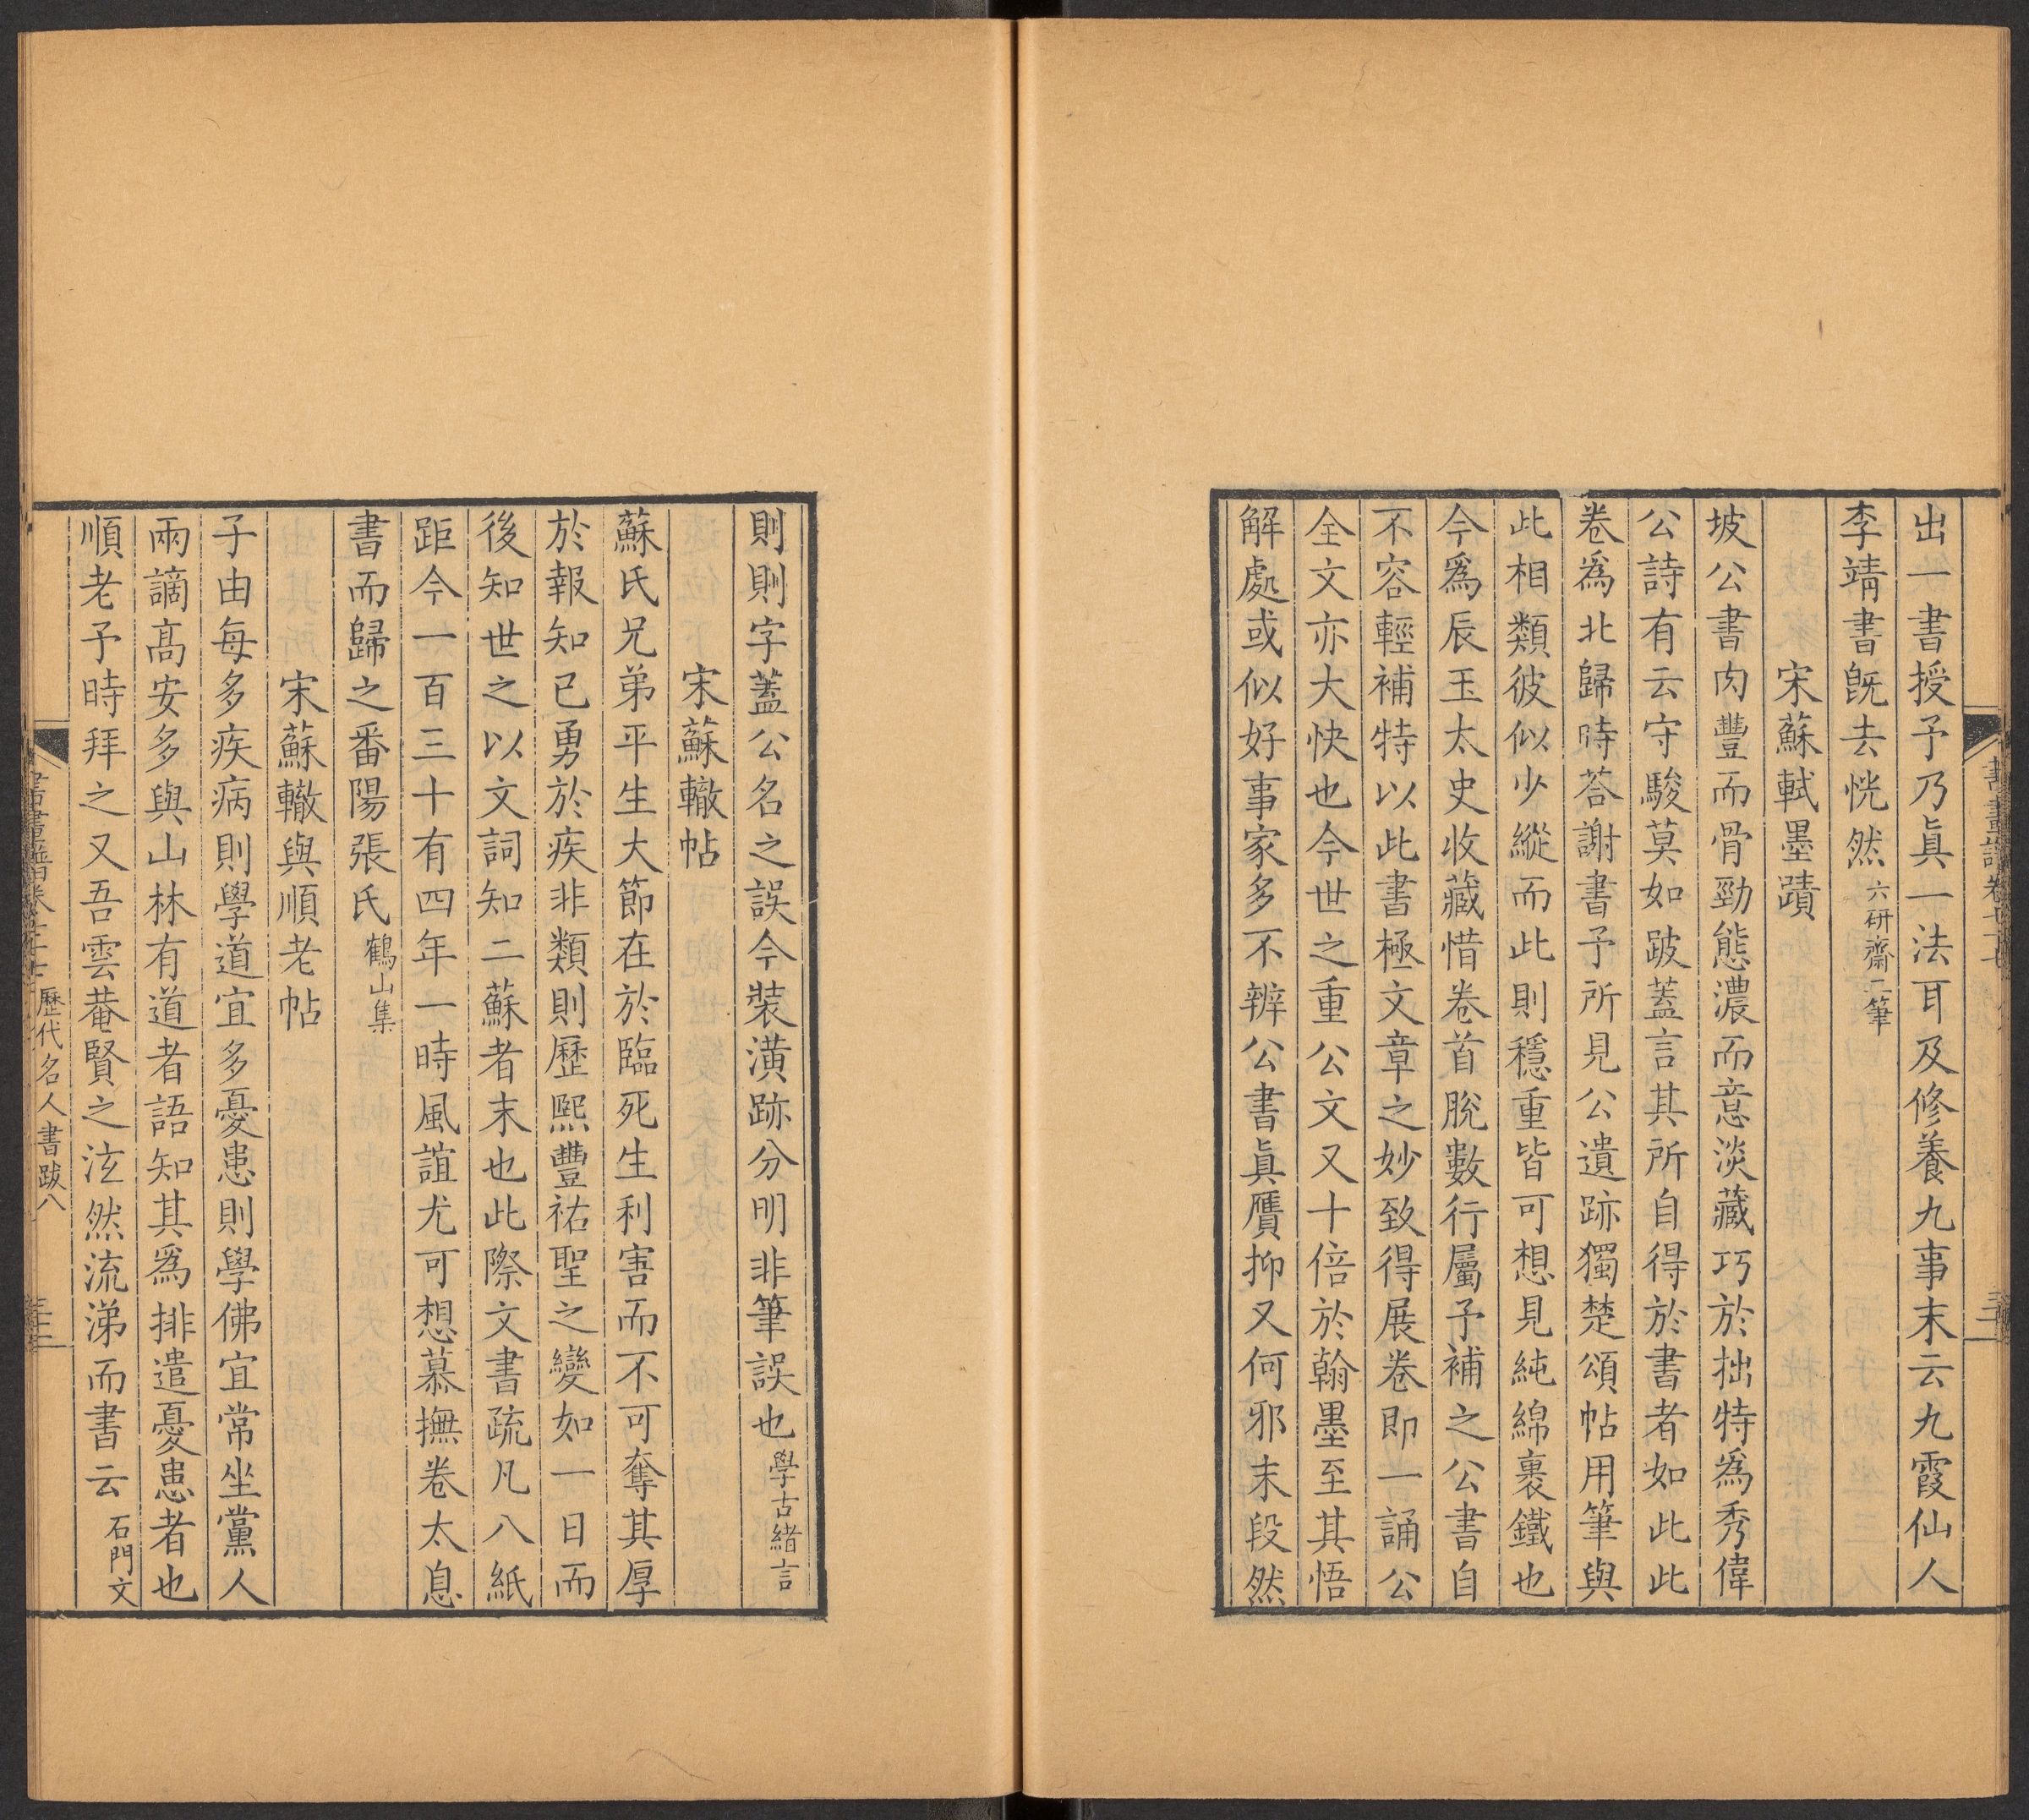 出一書授予乃眞一法耳及修養九事末云九霞仙人
李靖書旣去恍然六研齋二筆
宋蘇軾墨蹟
坡公書肉豐而骨勁態濃而意淡藏巧於拙特爲秀偉
公詩有云守駿莫如跛蓋言其所自得於書者如此此
卷爲北歸時荅謝書予所見公遺跡獨楚頌帖用筆與
此相類彼似少縱而此則穩重皆可想見純綿裹鐵也
今爲辰玉太史收藏惜卷首脫數行屬予補之公書自
不容輕補特以此書極文章之妙致得展卷即一誦公
全文亦大快也今世之重公文又十倍於翰墨至其悟
解處或似好事家多不辨公書眞贋抑又何邪末段然
則則字蓋公名之誤今裝潢跡分明非筆誤也學古緒言
宋蘇轍帖
蘇氏兄弟平生大節在於臨死生利害而不可奪其厚
於報知已勇於疾非類則歷熙豐祐聖之變如一日而
後知世之以文詞知二蘇者末也此際文書疏凡八紙
距今一百三十有四年一時風誼尤可想慕撫卷太息
書而歸之番陽張氏鶴山集
宋蘇轍與順老帖
子由每多疾病則學道宜多憂患則學佛宜常坐黨人
兩謫高安多與山林有道者語知其爲排遣憂患者也
順老予時拜之又吾雲菴賢之泫然流涕而書云石門文
歷代名人書跋八